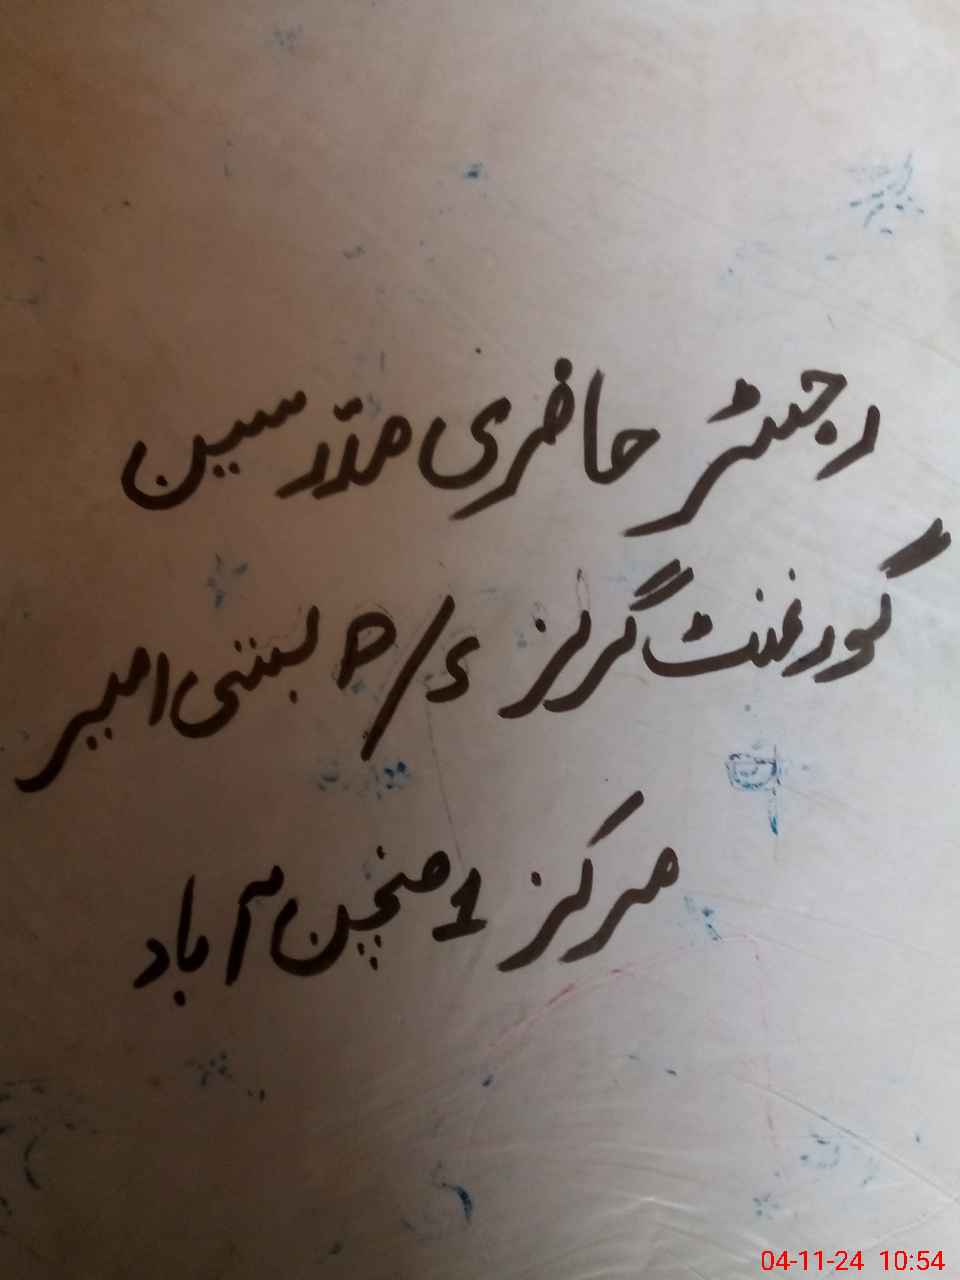 رجسٹر حاضری مدرسین
گورنمنٹ گرلز p/s بستی امیر
مرکز 1 منچن آباد
04-11-24 10:54